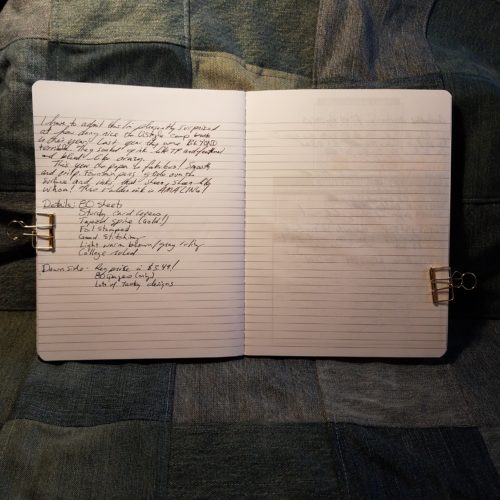 I have to admit that I'm pleasantly surprised
at how darng nice the UStyle Comp books
is this year! Last year they were BEYOND
terrible. They soaked up ink like TP and feathered
and bled like crazy.
This year the paper is fabulous! Smooth
and crisp. Fountain pens glide over the
surface and inks that sheen, sheen like
whoa! This Walden ink is AMAZING!
Details: 80 sheets
Sturdy card covers
Taped spine (Gold!)
Foil stamped
Good stitching
Light warm brown/gray ruling
College ruled
Down side - Reg price is $3.49!
80 pages (only)
Lots of tacky designs